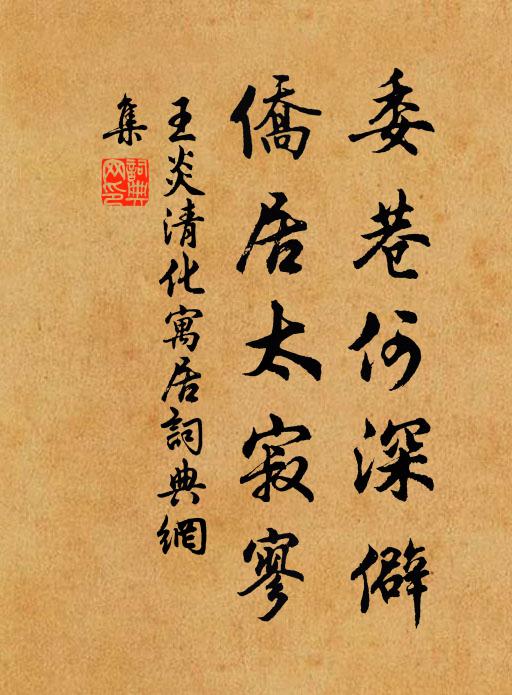 委巷何深僻
僑居太寂寥
王炎清化寓居詞典網
集
詞典
网印